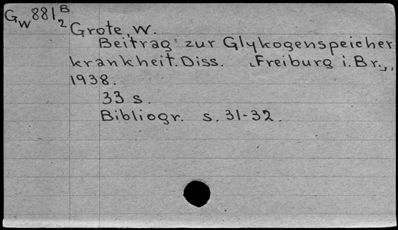 GW 881 B2
Grote, W.
Beitrag zur Glykogenspeicher
krankheit. Diss. Freiburg i. Br.,
1938.
33 s.
Bibliogr. s. 31-32.